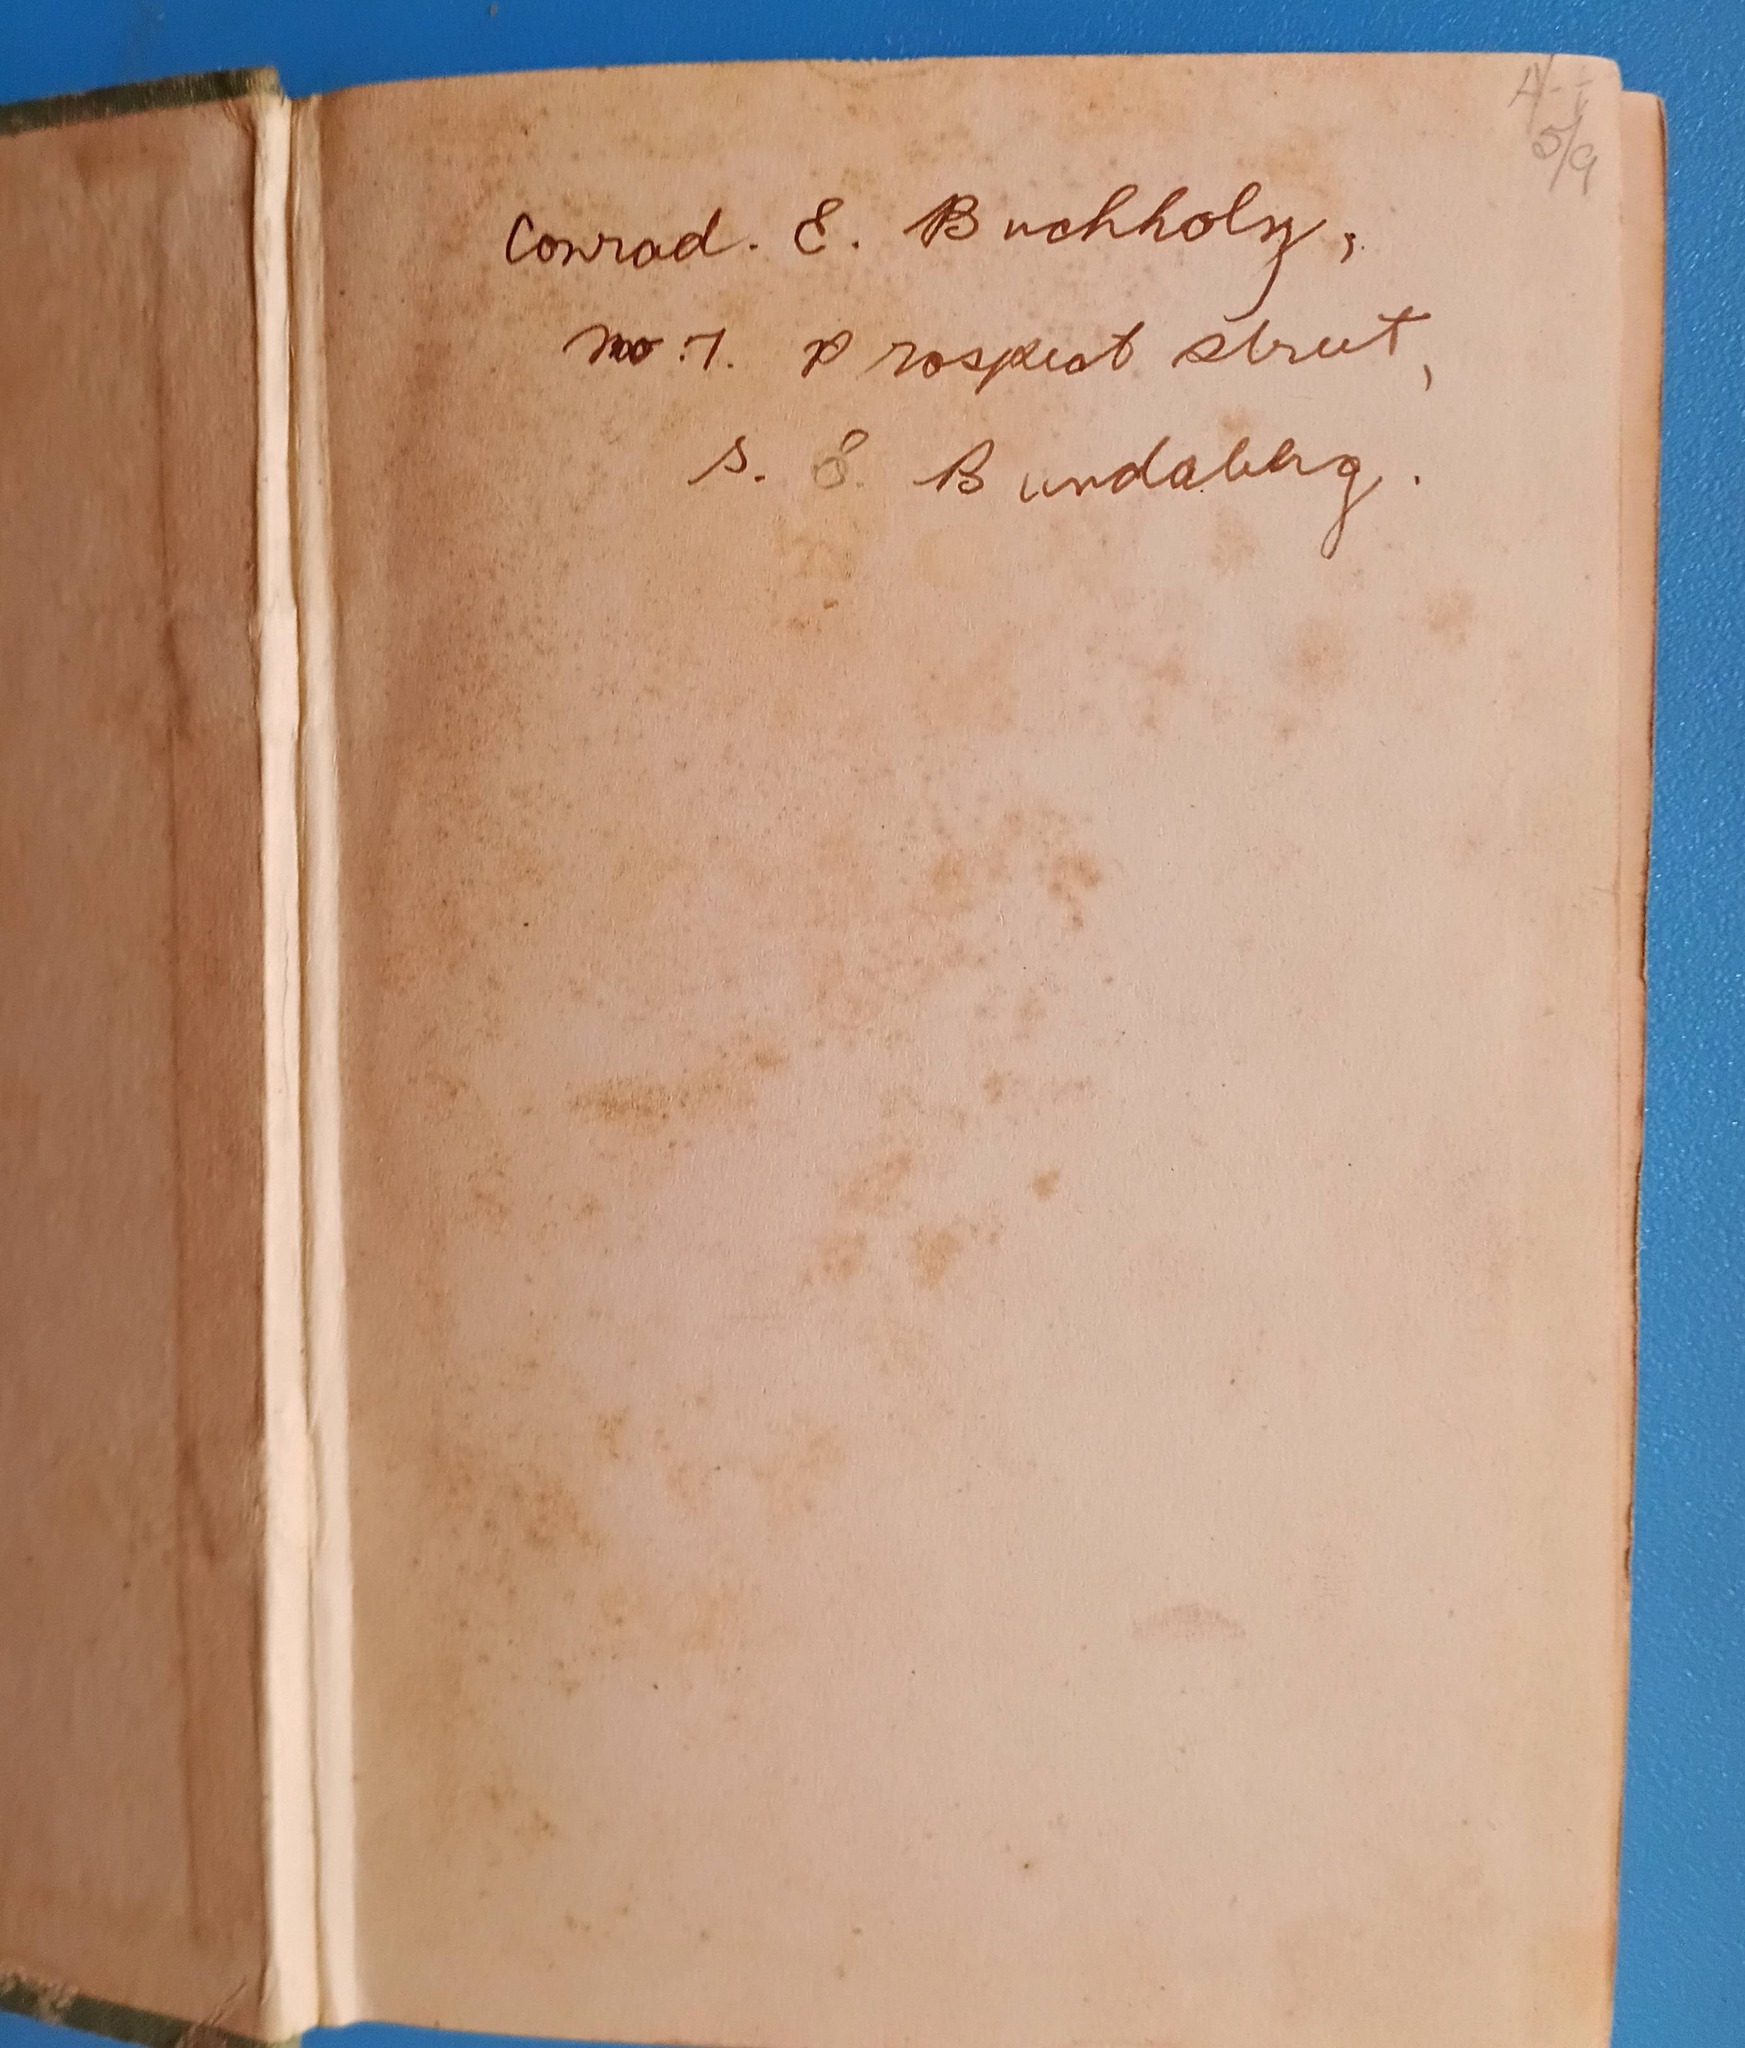 5/9
Conrad. E. Buchholz,
no. 7. Prospect street,
S. E. Bundaberg.